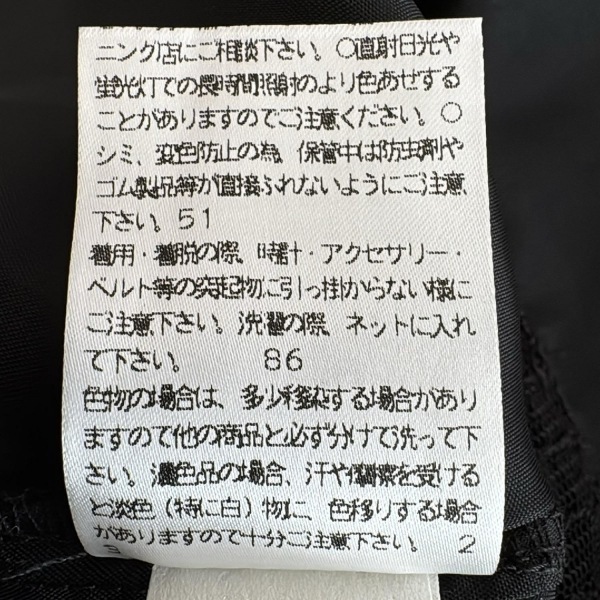 ニング店にご相談下さい。○直射日光や
蛍光灯での長時間照射のより色あせする
ことがありますのでご注意ください。○
シミ、変色防止の為、保管中は防虫剤や
ゴム製品等が直接ふれないようにご注意
下さい。51
着用・着脱の際、時計・アクセサリー・
ベルト等の突起物に引っ掛からない様に
ご注意下さい。洗濯の際、ネットに入れ
て下さい。 86
色物の場合は、多少移染する場合があり
ますので他の商品と必ず分けて洗って下
さい。濃色品の場合、汗や摩擦を受ける
と淡色（特に白）物に 色移りする場合
がありますので十分ご注意下さい。 2